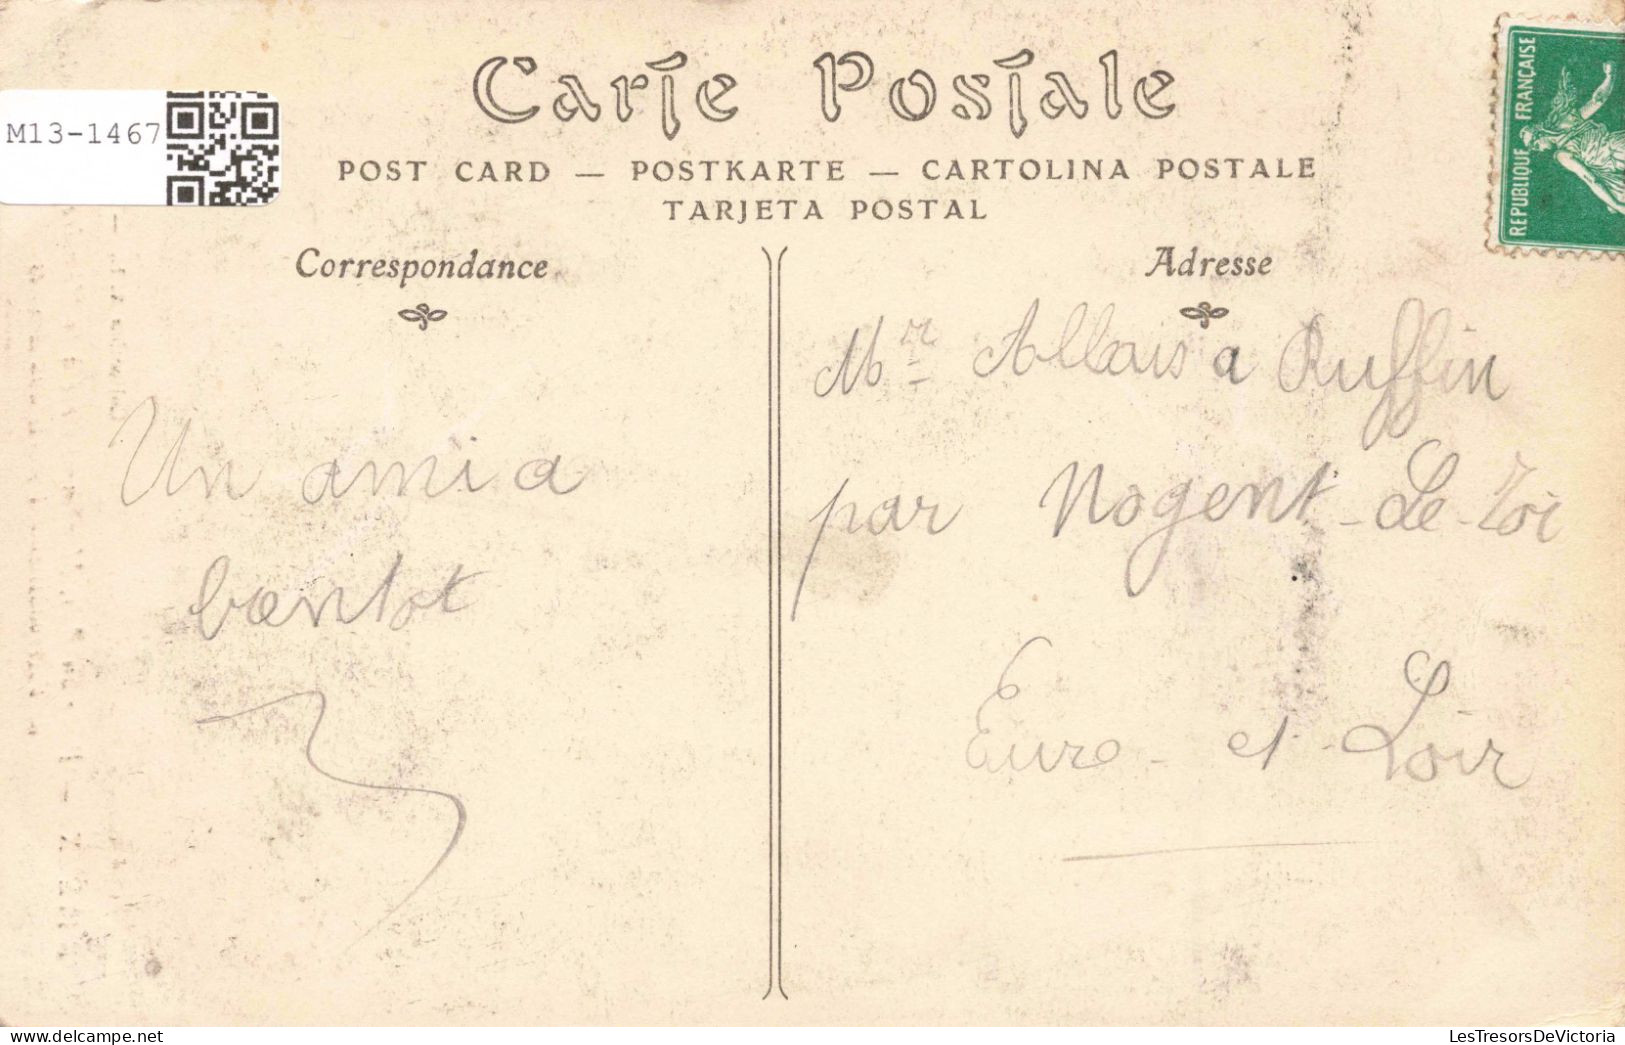 Carte Postale
POST CARD — POSTKARTE — CARTOLINA POSTALE
TARJETA POSTAL
M13-1467
REPUBLIQUE FRANÇAISE
Correspondance
Un ami a
baentot
Adresse
Mr Allais a Ruffin
par Nogent-Le-Roi
Eure-et-Loir
LesTresorsDeVictoria.com